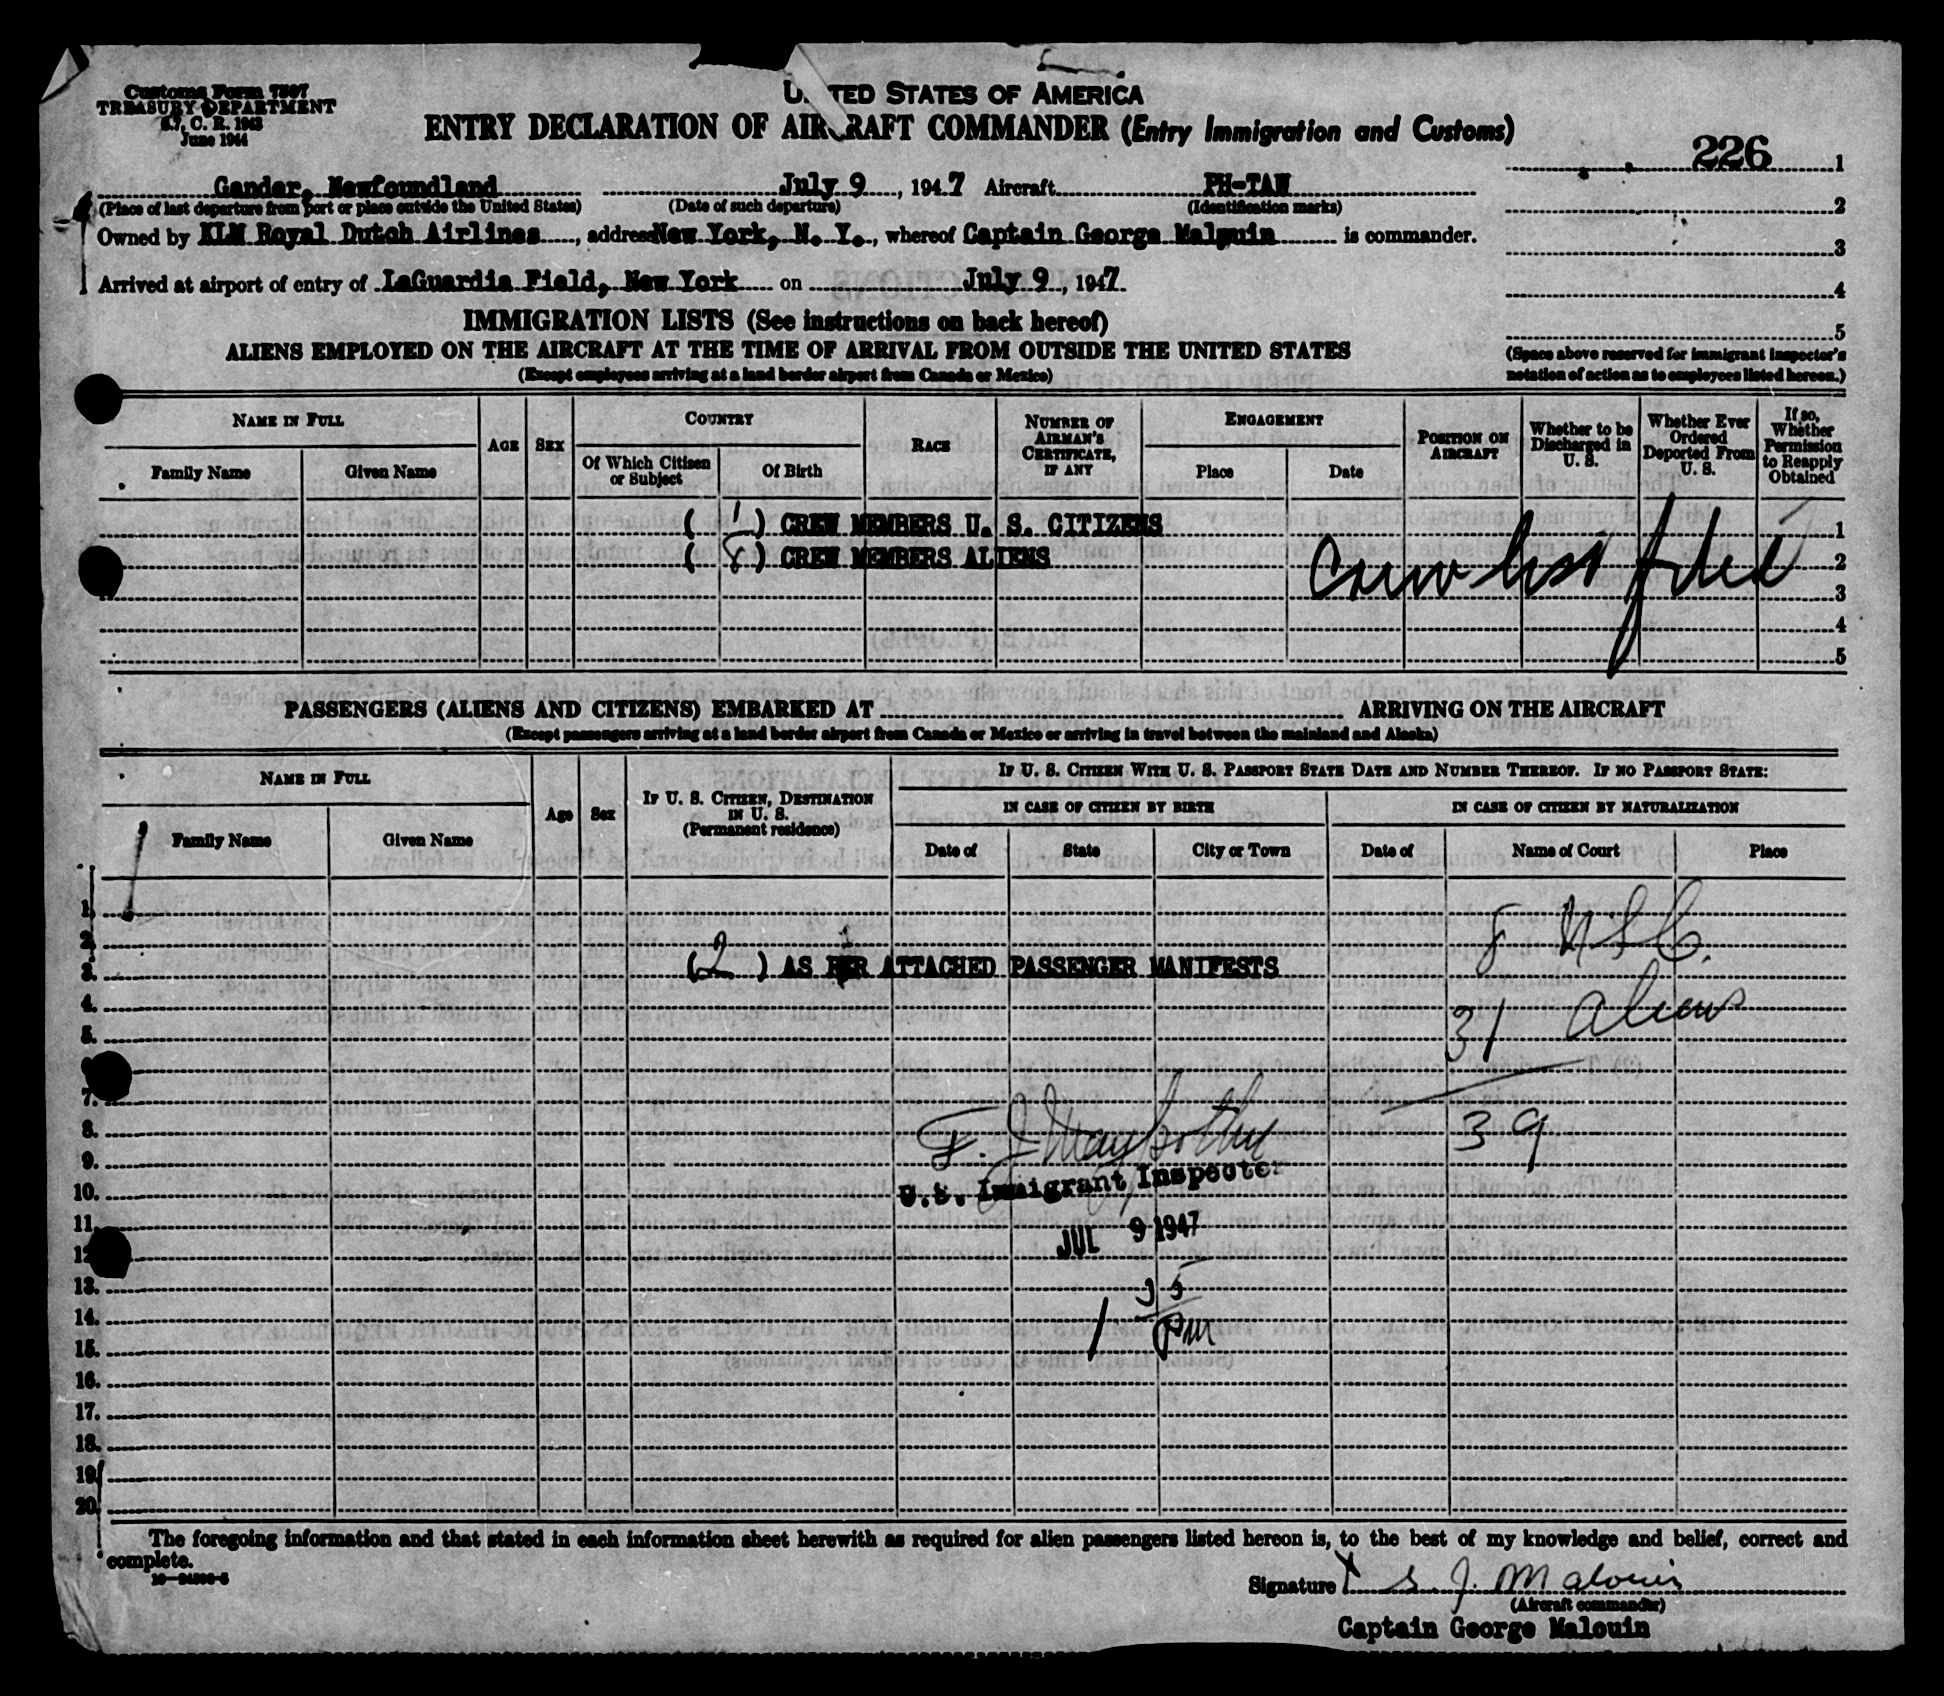 Customs Form 7507
TREASURY DEPARTMENT
June 1944
UNITED STATES OF AMERICA
ENTRY DECLARATION OF AIRCRAFT COMMANDER (Entry Immigration and Customs)
226 1
Gander, Newfoundland July 9, 1947 Aircraft PH-TAW
(Place of last departure from port or place outside the United States) (Date of such departure) (Identification marks)
2
Owned by KLM Royal Dutch Airlines, address New York, N. Y., whereof Captain George Malouin is commander.
3
Arrived at airport of entry of LaGuardia Field, New York on July 9, 1947
4
IMMIGRATION LISTS (See instructions on back hereof)
5
ALIENS EMPLOYED ON THE AIRCRAFT AT THE TIME OF ARRIVAL FROM OUTSIDE THE UNITED STATES
(Space above reserved for immigrant inspector's notation of action as to employees listed hereon.)
(Except employees arriving at a land border airport from Canada or Mexico)
NAME IN FULL
Family Name
Given Name
AGE
SEX
COUNTRY
Of Which Citizen or Subject
Of Birth
RACE
NUMBER OF AIRMAN'S CERTIFICATE, IF ANY
ENGAGEMENT
Place
Date
POSITION ON AIRCRAFT
Whether to be Discharged in U. S.
Whether Ever Ordered Deported From U. S.
If so, Whether Permission to Reapply Obtained
( 1 ) CREW MEMBERS U. S. CITIZENS 1
( 8 ) CREW MEMBERS ALIENS 2
Crew list filed
3
4
5
PASSENGERS (ALIENS AND CITIZENS) EMBARKED AT ARRIVING ON THE AIRCRAFT
(Except passengers arriving at a land border airport from Canada or Mexico or arriving in travel between the mainland and Alaska)
NAME IN FULL
Family Name
Given Name
Age
Sex
IF U. S. CITIZEN, DESTINATION IN U. S.
(Permanent residence)
IF U. S. CITIZEN WITH U. S. PASSPORT STATE DATE AND NUMBER THEREOF. IF NO PASSPORT STATE:
IN CASE OF CITIZEN BY BIRTH
Date of
State
City or Town
IN CASE OF CITIZEN BY NATURALIZATION
Date of
Name of Court
Place
1.
2.
8 USC.
3. (2) AS PER ATTACHED PASSENGER MANIFESTS
4.
31 aliens
5.
7.
8.
39
9.
U.S. Immigrant Inspector
10.
11.
JUL 9 1947
12.
13.
1 35 PM
14.
15.
16.
17.
18.
19.
20.
The foregoing information and that stated in each information sheet herewith as required for alien passengers listed hereon is, to the best of my knowledge and belief, correct and
complete.
Signature X G. J. Malouin
(Aircraft commander)
Captain George Malouin